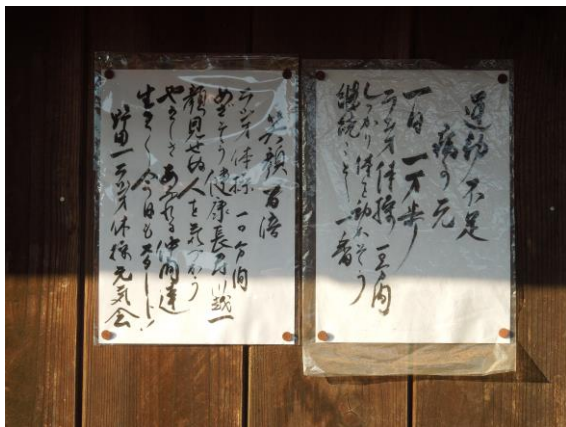 運動不足
病の元
一日 一万歩
ラジオ体操 一ヶ間
しっかり体を動かそう
継続こそ一番
笑顔百倍
ラジオ体操 一ヶ間
めざそう健康長寿川越一
顔見せぬ人を気づかう
やさしさあふれる仲間達
生きて今日もスタート!
野田一ラジオ体操元気会